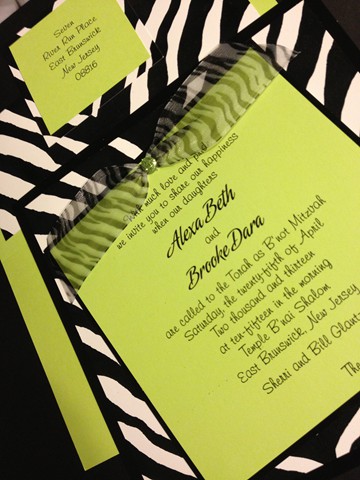 Seven
River Run Place
East Brunswick
New Jersey
08816
With much love and
we invite you to share our happiness
when our daughters
Alexa Beth
and
Brooke Dara
are called to the Torah as B'not Mitzvah
Saturday, the twenty-fifth of April
Two thousand and thirteen
at ten-fifteen in the morning
Temple B'nai Shalom
East Brunswick, New Jersey
Sherri and Bill Glantz
The